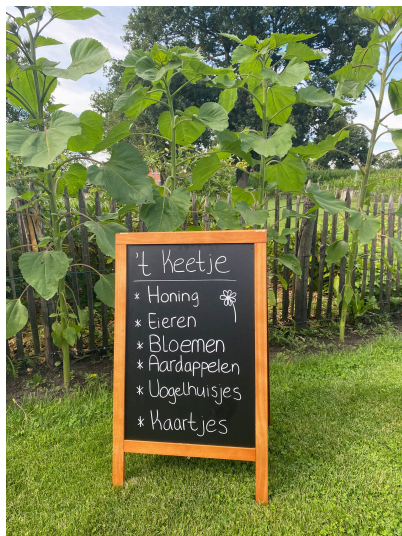 't Keetje
* Honing
* Eieren
* Bloemen
* Aardappelen
* Vogelhuisjes
* Kaartjes